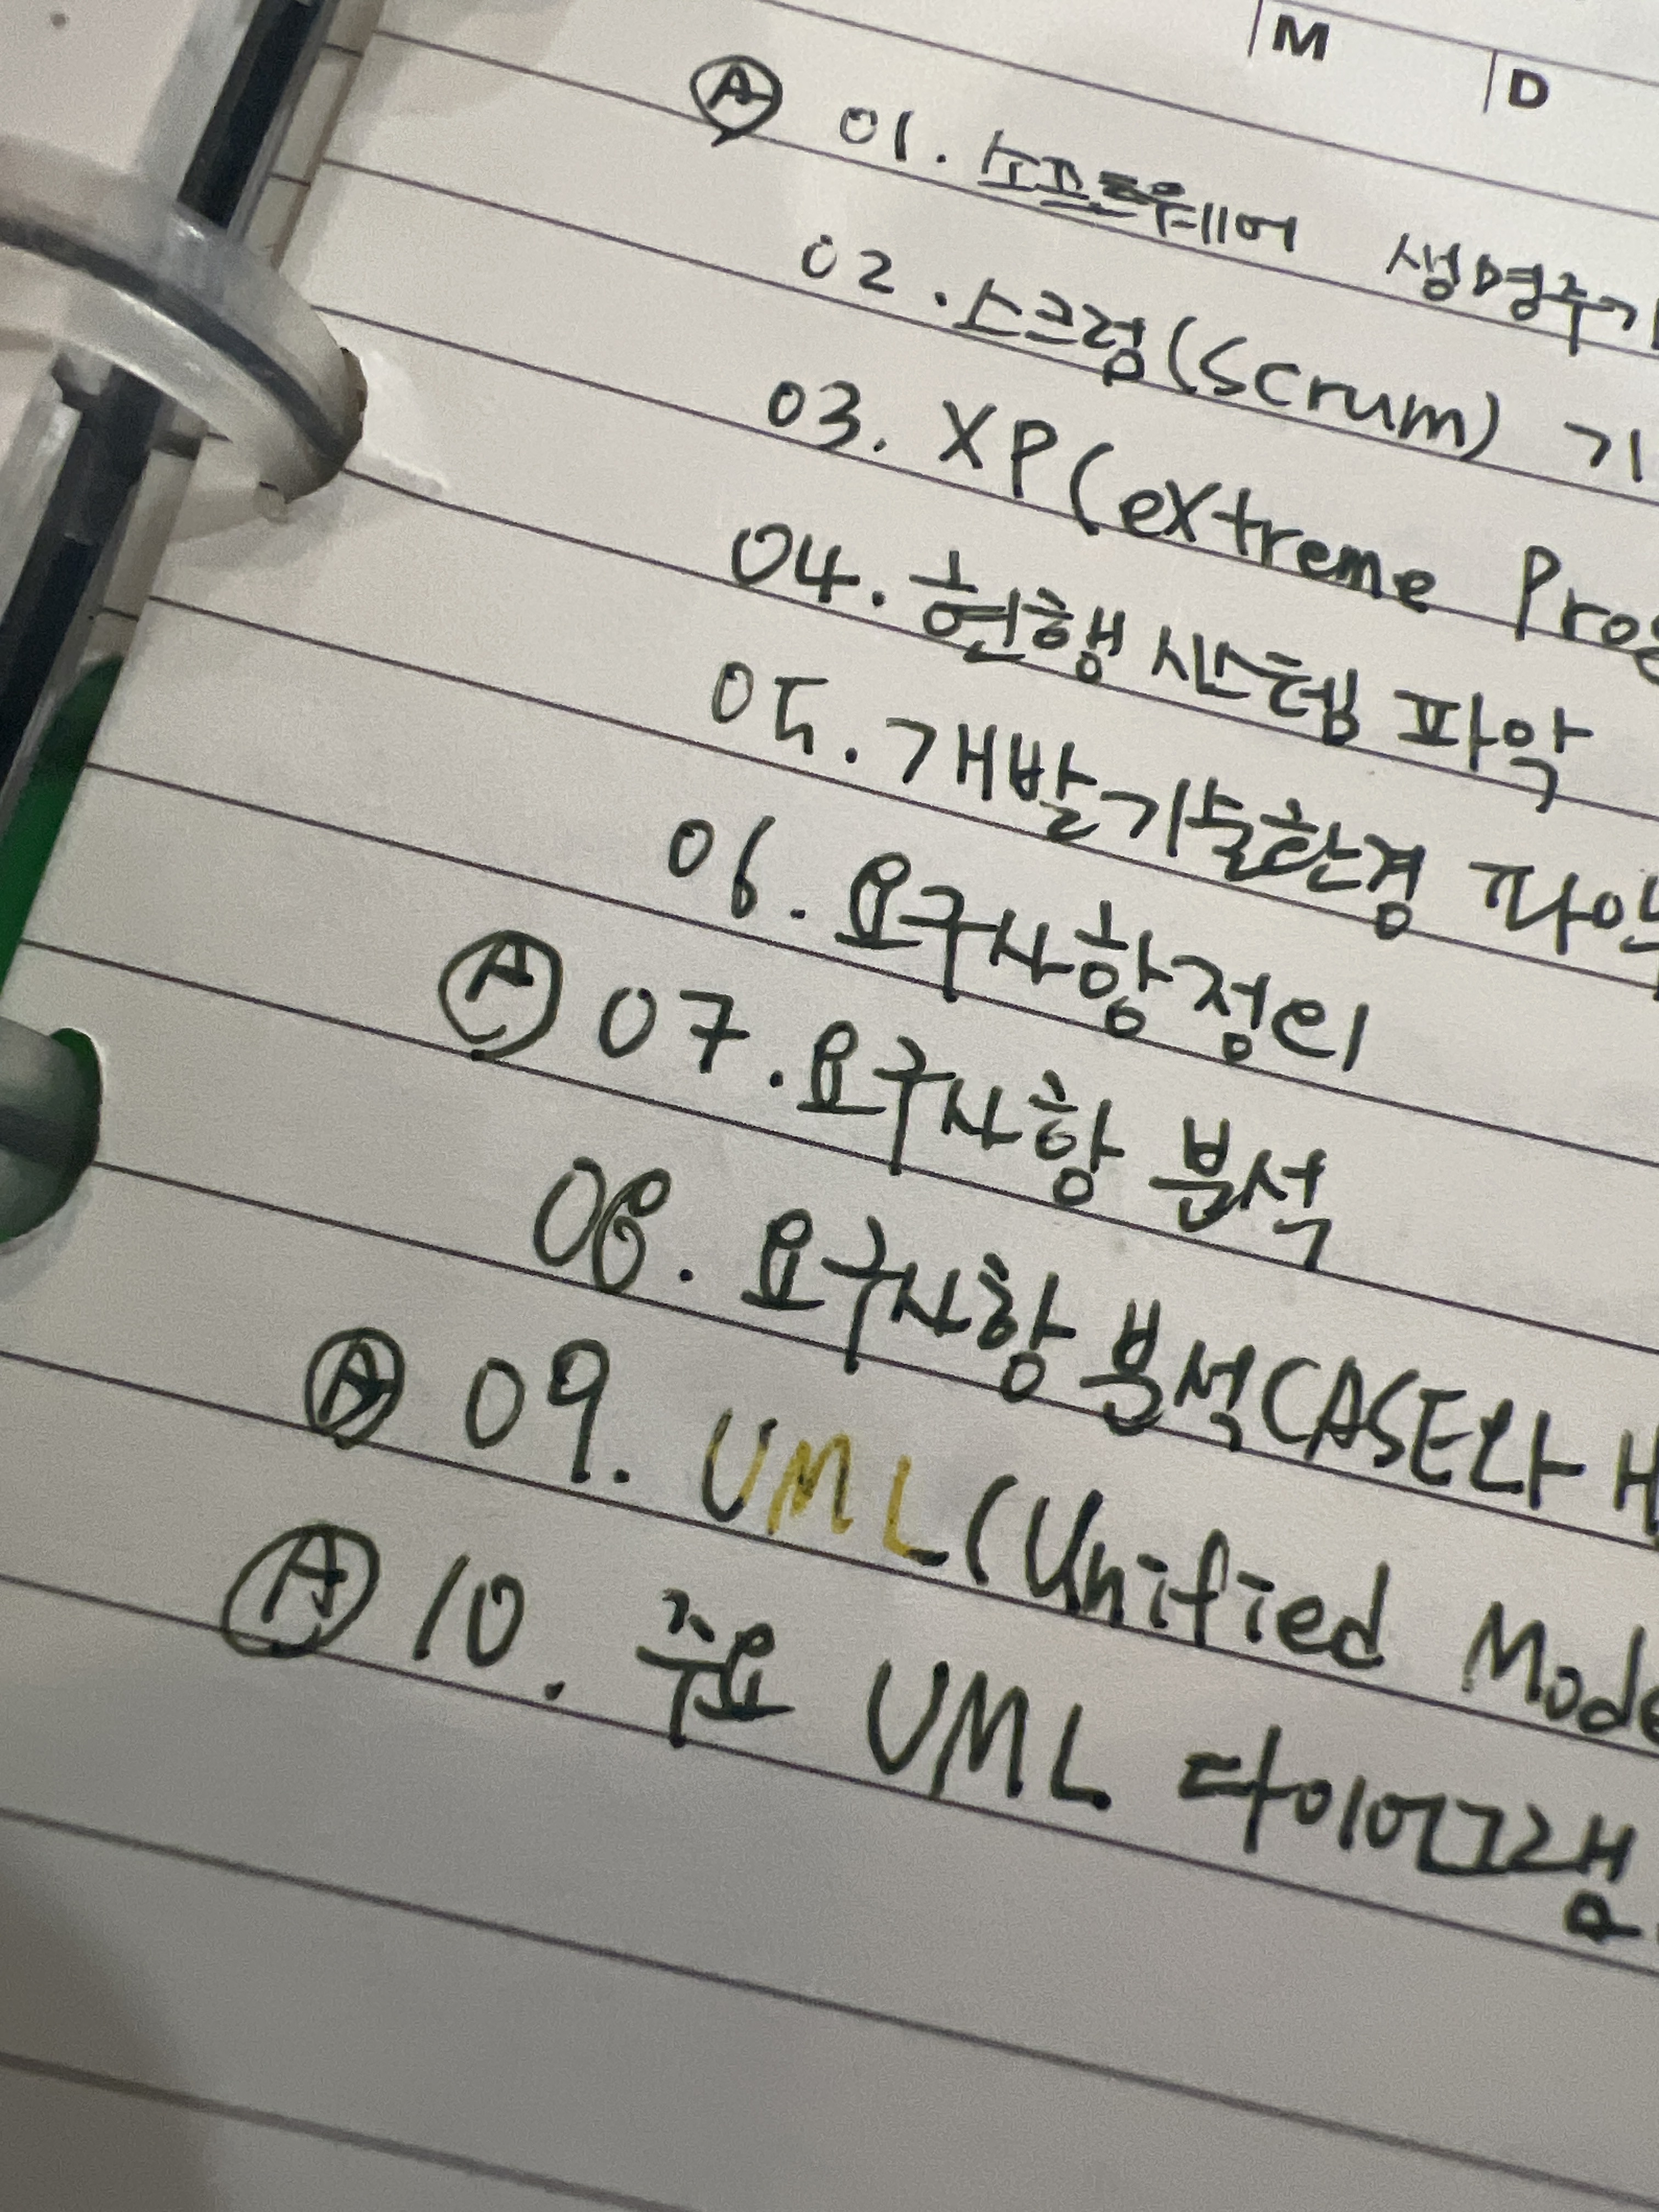 M D
Ⓐ 01. 소프트웨어 생명주기
02. 스크럼(Scrum) 기
03. XP(eXtreme Prog
04. 현행 시스템 파악
05. 개발기술환경 파악
06. 요구사항정의
Ⓐ 07. 요구사항 분석
08. 요구사항 분석CASE와 H
Ⓐ 09. UML(Unified Mode
Ⓐ 10. 주요 UML 다이어그램